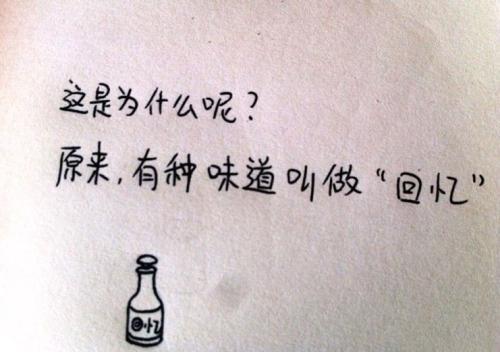 这是为什么呢？
原来，有种味道叫做“回忆”
回忆